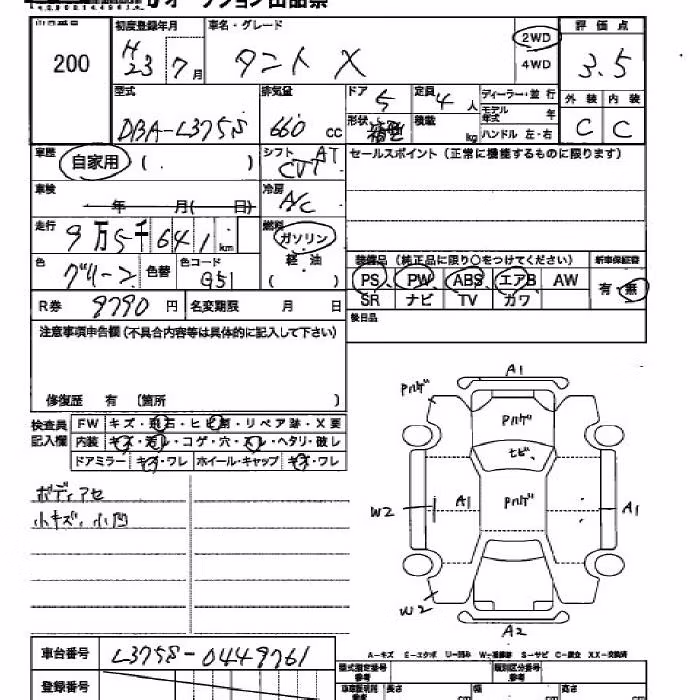 オークション出品票
200
初度登録年月
H23 7月
車名・グレード
タント X
2WD
4WD
評価点
3.5
型式
DBA-L375S
排気量
660 cc
ドア 5
定員 4 人
形状 箱型
積載 kg
ディーラー・並行
モデル年式 年
ハンドル 左・右
外装 内装
C C
車歴 自家用 ( )
シフト AT
CVT
セールスポイント (正常に機能するものに限ります)
車検 年 月( 日)
冷房
A/C
走行 9万5千641 km
燃料
ガソリン
軽油
( )
色 グリーン 色替
色コード
G51
装備品 (純正品に限り〇をつけてください)
新車保証書
PS PW ABS エアB AW
SR ナビ TV カワ
有・無
R券 9790 円
名変期限 月 日
後日品
注意事項申告欄 (不具合内容等は具体的に記入して下さい)
修復歴 有 〔箇所 〕
検査員記入欄
FW キズ・飛石・ヒビ割・リペア跡・X要
内装 キズ・汚レ・コゲ・穴・スレ・ヘタリ・破レ
ドアミラー キズ・ワレ ホイール・キャップ キズ・ワレ
ボディアセ
小キズ、小凹
A1
Pハゲ
Pハゲ
ヒビ
W2 A1 Pハゲ A1
W2
A2
A-キズ E-エクボ U-凹み W-補修跡 S-サビ C-腐食 XX-交換済
車台番号 L375S-0449761
登録番号
型式指定番号
類別区分番号
長さ cm 幅 cm 高さ cm